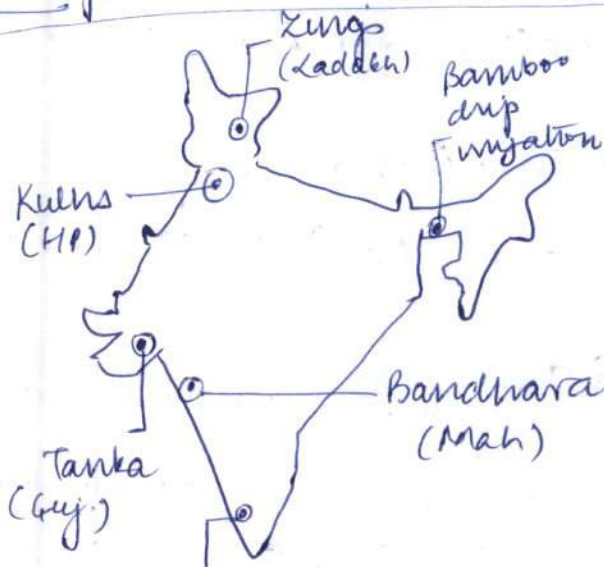 Zings
(Ladakh)
Bamboo
drip
irrigation
Kulhs
(HP)
Bandhara
(Mah)
Tanka
(Guj.)